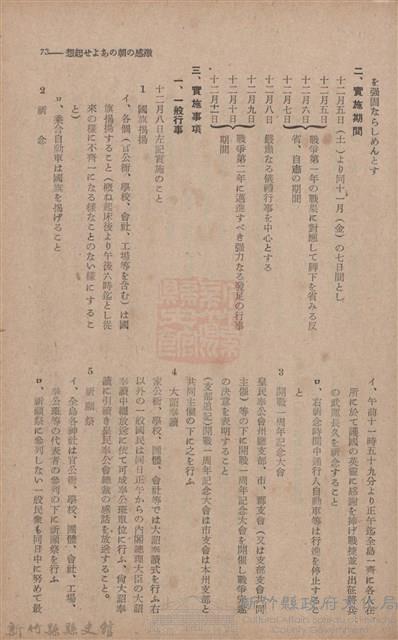 73——想起せよあの朝の感激
を强固ならしめんとす
二、實施期間
十二月五日（土）より同十一月（金）の七日間とし
十二月五日
十二月六日
十二月七日
戰爭第一年の戰果に對應して脚下を省みる反
省、自肅の期間
十二月八日　嚴肅なる儀禮行事を中心とする
十二月九日
十二月十日
十二月十一日
戰爭第二年に邁進すべき强力なる發足の行事
期間
三、實施事項
一、一般行事
十二月八日左記實施のこと
1　國旗揭揚
イ、各個（官公衙、學校、會社、工場等を含む）は國
旗揭揚すること（概ね起床後より午後六時迄とし從
來の樣に不齊一になる樣なことのない樣にするこ
と）
ロ、乘合自動車は國旗を揭げること
2　祈念
イ、午前十一時五十九分より正午迄全島一齊に各在
所に於て護國の英靈に感謝を捧げ戰捷並に出征將兵
の武運長久を祈念すること
ロ、右祈念時間中通行人自動車等は行進を停止するこ
と
3　開戰一周年記念大會
皇民奉公會州廳支部、市、郡支會（又は支部支會共同
主催）等の下に開戰一周年記念大會を開催し戰爭完遂
の決意を表明すること
（支部追記）開戰一周年記念大會は市支會は本州支部と
共同主催の下に之を行ふ
4　大詔奉讀
官公衙、學校、團體、會社等では大詔奉讀式を行ふ右
以外の一般國民は同日正午からの內閣總理大臣の大詔
奉讀中繼放送に依て可成奉公班單位に行ふ、尙大詔奉
讀に引續き皇民奉公會總裁の感話を放送すること。
5　祈願祭
イ、全島各神社は官公衙、學校、團體、會社、工場、
奉公班等の代表者の參列の下に祈願祭を行ふ
ロ、祈願祭に參列しない一般民衆も同日中に努めて最
新竹縣縣史館
新竹縣政府文化局
Cultural Affairs Bureau of Hsinchu County